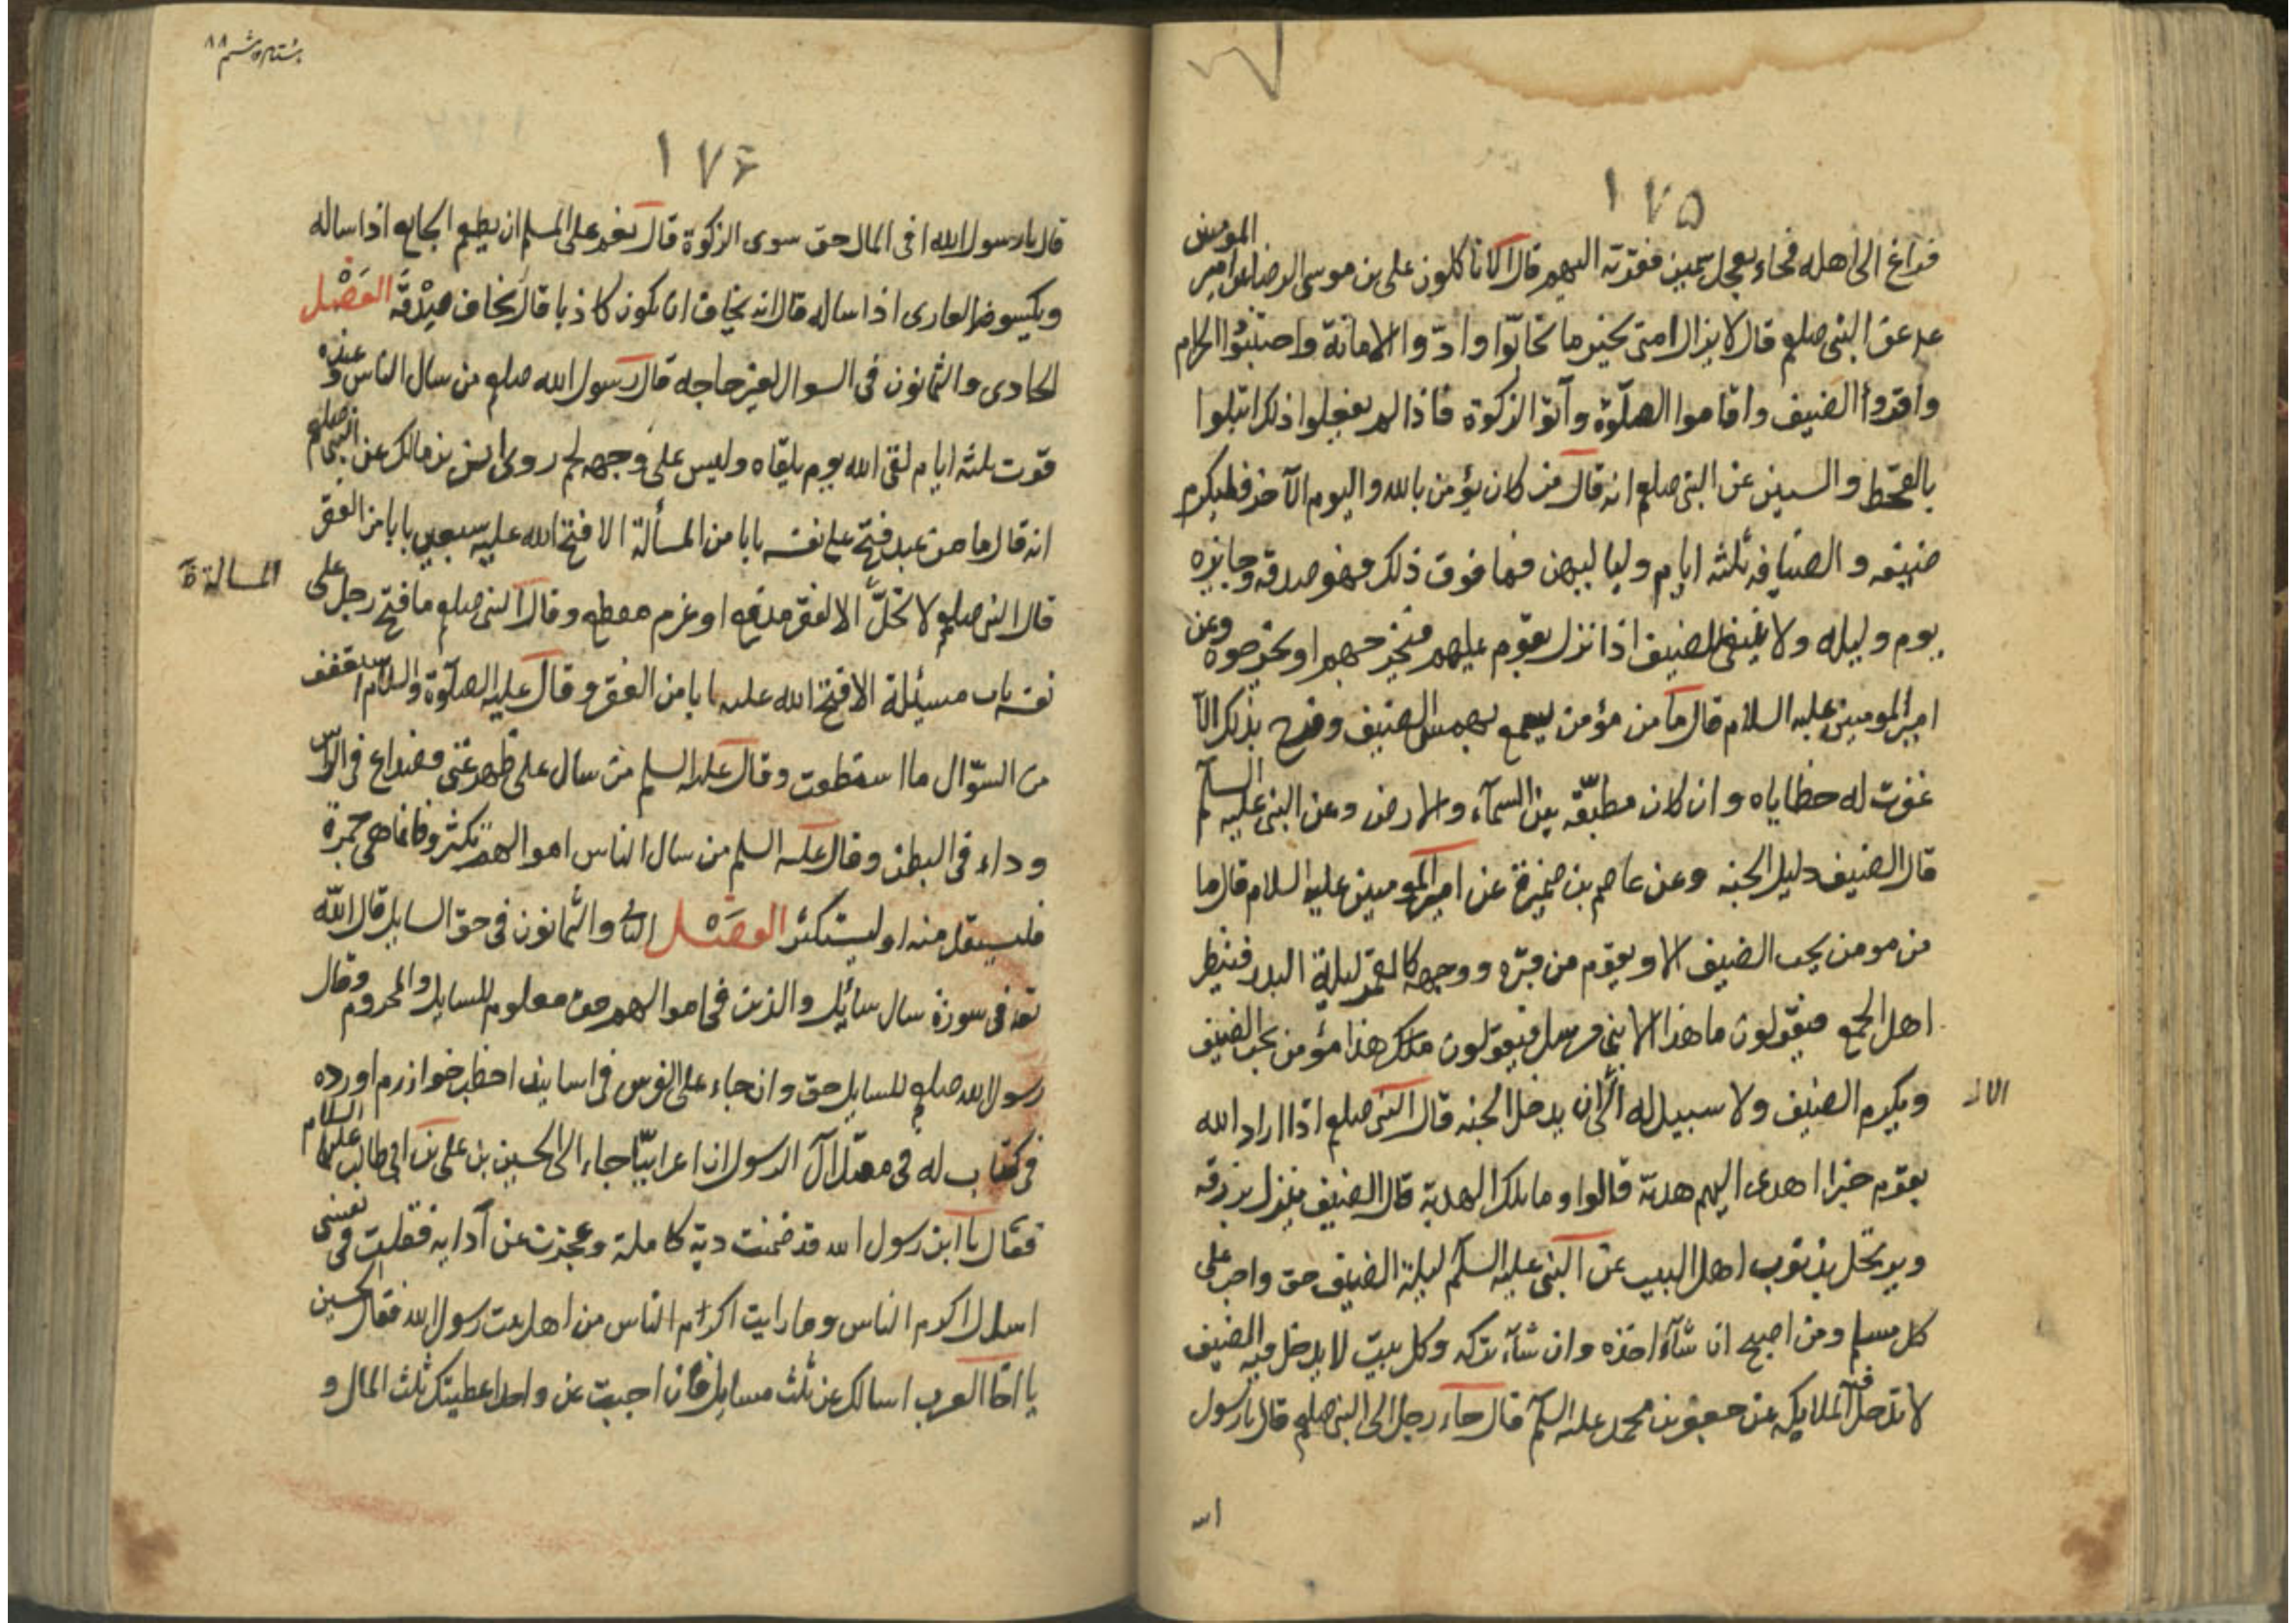 ١٧۵
فراغ الى اهله فجاء بعجل سمين فقربه اليهم قال الا تاكلون على بن موسى الرضا عن امير المومنين
عن النبى صلعم قال لا يزال امتى بخير ما تحابّوا وادّوا الامانة واجتنبوا الحرام
واقروا الضيف واقاموا الصلوة وآتوا الزكوة فاذا لم يفعلوا ذلك ابتلوا
بالقحط والسنين عن النبى صلعم انه قال من كان يؤمن بالله واليوم الآخر فليكرم
ضيفه والضيافه ثلثه ايام وليا ليهن فما فوق ذلك فهو صدقه وجايزه
يوم وليله ولا ينبغى للضيف اذا نزل بقوم عليهم فيخرجهم او يخرجوه وعن
امير المومنين عليه السلام قال ما من مؤمن يسمع بهمس الضيف وفرح بذلك الا
غفرت له خطاياه وان كان مطبّقه بين السمآء والارض وعن النبى عليه السلم
قال الضيف دليل الجنه وعن عاصم بن ضمرة عن امير المومنين عليه السلام قال ما
من مومن يحب الضيف الا ويقوم من قبره ووجهه كالقمر ليلة البدر فينظر
اهل الجمع فيقولون ما هذا الا نبى مرسل فيقولون ملك هذا مؤمن يحب الضيف
ويكرم الضيف ولا سبيل له الّا ان يدخل الجنه قال النبى صلعم اذا اراد الله
الا ان
بقوم خيرا اهدى اليهم هدية قالوا وما تلك الهدية قال الضيف ينزل برزقه
ويرتحل بذنوب اهل البيت عن النبى عليه السلم ليلة الضيف حق واجب على
كل مسلم ومن اصبح ان شآء اخذه وان شآء تركه وكل بيت لا يدخل فيه الضيف
لا تدخل فيه الملايكه عن جعفر بن محمد عليه السلم قال جاء رجل الى النبى صلعم قال يا رسول
١٧۶
قال يا رسول الله ا فى المال حق سوى الزكوة قال نعم على المسلم ان يطعم الجايع اذا ساله
ويكسو العارى اذا ساله قال انه يخاف ان يكون كاذبا قال يخاف صِدْقَه الفَصْل
الحادى والثمانون فى السوال لغير حاجه قال رسول الله صلعم من سال الناس وعنده
قوت ثلثه ايام لقى الله يوم يلقاه وليس على وجهه لحم روى انس بن مالك عن النبى صلعم
انه قال ما من عبد فتح على نفسه بابا من المسألة الا فتح الله عليه سبعين بابا من الفقر
قال النبى صلعم لا تحلّ الا لفقر مدقع او غرم مفظع وقال النبى صلعم ما فتح رجل على
المسالة
نفسه باب مسئلة الا فتح الله عليه بابا من الفقر وقال عليه الصلوة والسلام استعفف
من السؤال ما استطعت وقال عليه السلم من سال على ظهر غنى فصداع فى الراس
وداء فى البطن وقال عليه السلم من سال الناس اموالهم تكثرو فانما هى جمرة
فليستقل منه او ليستكثر الفصْل الثانى والثمانون فى حق السايل قال الله
تعه فى سورة سال سائل والذين فى اموالهم حق معلوم للسايل والمحروم وقال
رسول الله صلعم للسايل حق وان جاء على الفرس فى اسانيد اخطب خوارزم اورده
فى كتاب له فى مقتل آل الرسول ان اعرابيّا جاء الى الحسين بن على بن ابى طالب عليهما السلام
فقال يا ابن رسول الله قد ضمنت دية كاملة وعجزت عن آدايه فقلت فى نفسى
اسال اكرم الناس وما رايت اكرام الناس من اهل بيت رسول الله فقال الحسين
يا اخا العرب اسالك عن ثلث مسايل فان اجبت عن واحد اعطيتك ثلث المال و